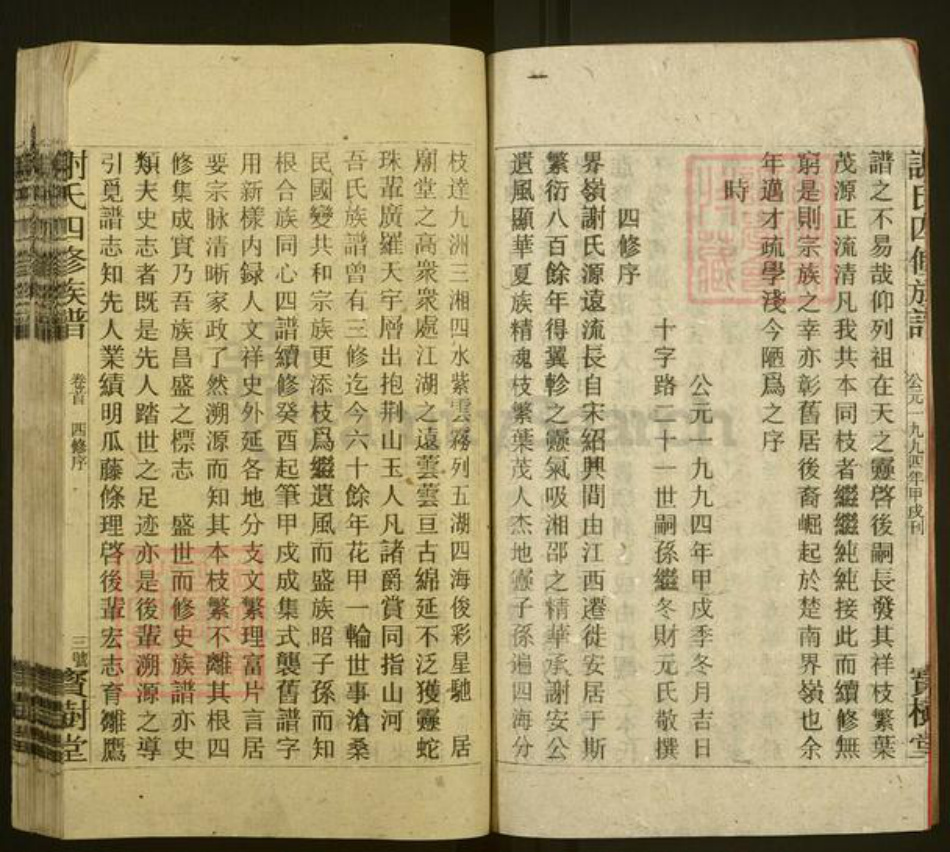 謝氏四修族譜
公元一九九四年甲戌刊
寶樹堂
譜之不易哉仰列祖在天之靈啓後嗣長發其祥枝繁葉
茂源正流清凡我共本同枝者繼繼純純接此而續修無
窮是則宗族之幸亦彰舊居後裔崛起於楚南界嶺也余
年邁才疏學淺今陋爲之序
時
公元一九九四年甲戌季冬月吉日
十字路二十一世嗣孫繼冬財元氏敬撰
四修序
界嶺謝氏源遠流長自宋紹興間由江西遷徙安居于斯
繁衍八百餘年得翼軫之靈氣吸湘邵之精華承謝安公
遺風顯華夏族精魂枝繁葉茂人杰地靈子孫遍四海分
枝達九洲三湘四水紫雲霧列五湖四海俊彩星馳 居
廟堂之高衆衆處江湖之遠蕓蕓亘古綿延不泛獲靈蛇
珠輩廣羅天宇層出抱荆山玉人凡諸爵賞同指山河
吾氏族譜曾有三修迄今六十餘年花甲一輪世事滄桑
民國變共和宗族更添枝爲繼遺風而盛族昭子孫而知
根合族同心四譜續修癸酉起筆甲戌成集式襲舊譜字
用新樣内録人文祥史外延各地分支文繁理富片言居
要宗脉清晰家政了然溯源而知其本枝繁不離其根四
修集成實乃吾族昌盛之標志 盛世而修史族譜亦史
類夫史志者既是先人踏世之足迹亦是後輩溯源之導
引覓譜志知先人業績明瓜藤條理啓後輩宏志育雛鷹
謝氏四修族譜
卷首 四修序
三號
寶樹堂